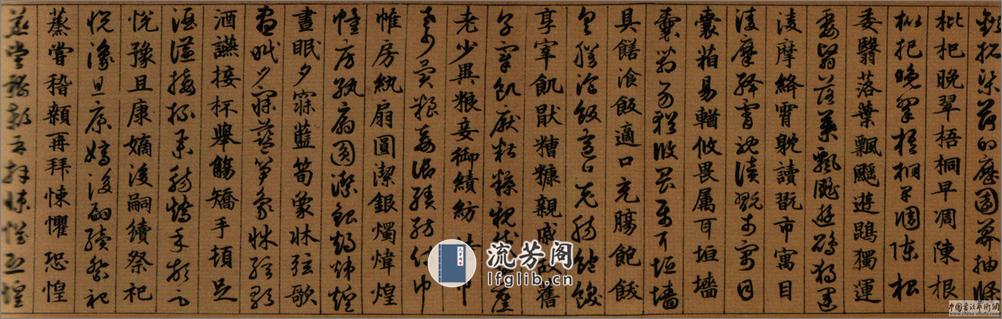 渠荷的歷園莽抽條
枇杷晚翠梧桐早凋陳根
枇杷晚翠梧桐早凋陳根
委翳落葉飄颻遊鵾獨運
委翳落葉飄颻遊鵾獨運
淩摩絳霄耽讀翫市寓目
淩摩絳霄耽讀翫市寓目
囊箱易輶攸畏属耳垣墻
囊箱易輶攸畏属耳垣墻
具饍飡飯適口充腸飽飫
具饍飡飯適口充腸飽飫
享宰飢猒糟糠親戚故舊
享宰飢猒糟糠親戚舊
老少異粮妾御績紡巾
老少異粮妾御績紡侍巾
帷房紈扇圓潔銀燭煒煌
帷房紈扇圓潔銀燭煒煌
晝眠夕寐藍筍象牀弦歌
晝眠夕寐藍筍象牀弦歌
酒讌接杯舉觴矯手頓足
酒讌接杯舉觴矯手頓足
悦豫且康嫡後嗣續祭祀
悦豫且康嫡後嗣續祭祀
蒸嘗稽顙再拜悚懼恐惶
蒸嘗稽顙再拜悚懼恐惶
流芳阁
lfglib.cn
中国书法艺术网